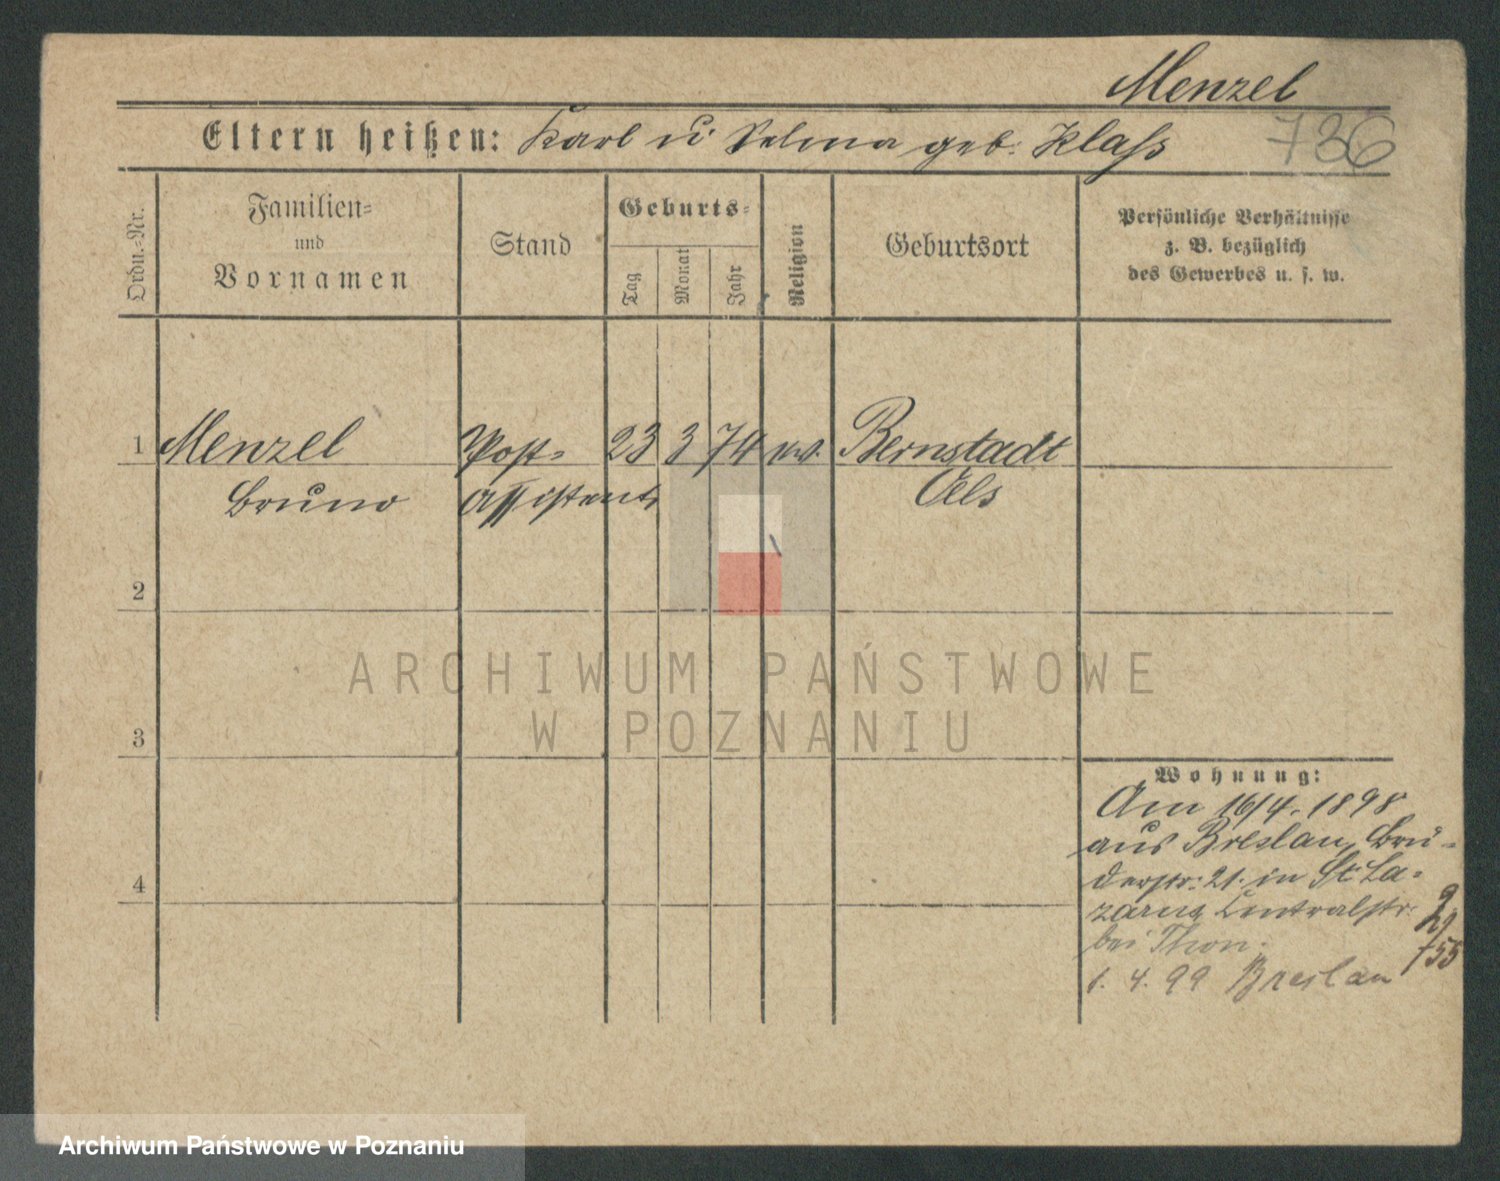 Menzel
736
Eltern heißen: Karl u Selma geb. Klaß
Ordn.-Nr.
Familien-
und
Vornamen
Stand
Geburts-
Tag
Monat
Jahr
Religion
Geburtsort
Persönliche Verhältnisse
z. B. bezüglich
des Gewerbes u. s. w.
1 Menzel Post- 23 3 74 ev. Bernstadt
Bruno Assistent Oels
2
ARCHIWUM PAŃSTWOWE
W POZNANIU
3
Wohnung:
Am 16/4. 1898
aus Breslau, Brü-
derstr. 21. in St. La-
zarus Centralstr. 9
bei Thon.
1. 4. 99 Breslau
4
Archiwum Państwowe w Poznaniu